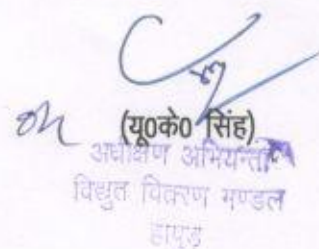 (यू0के0 सिंह)
अधीक्षण अभियन्ता
विद्युत वितरण मण्डल
हापुड़